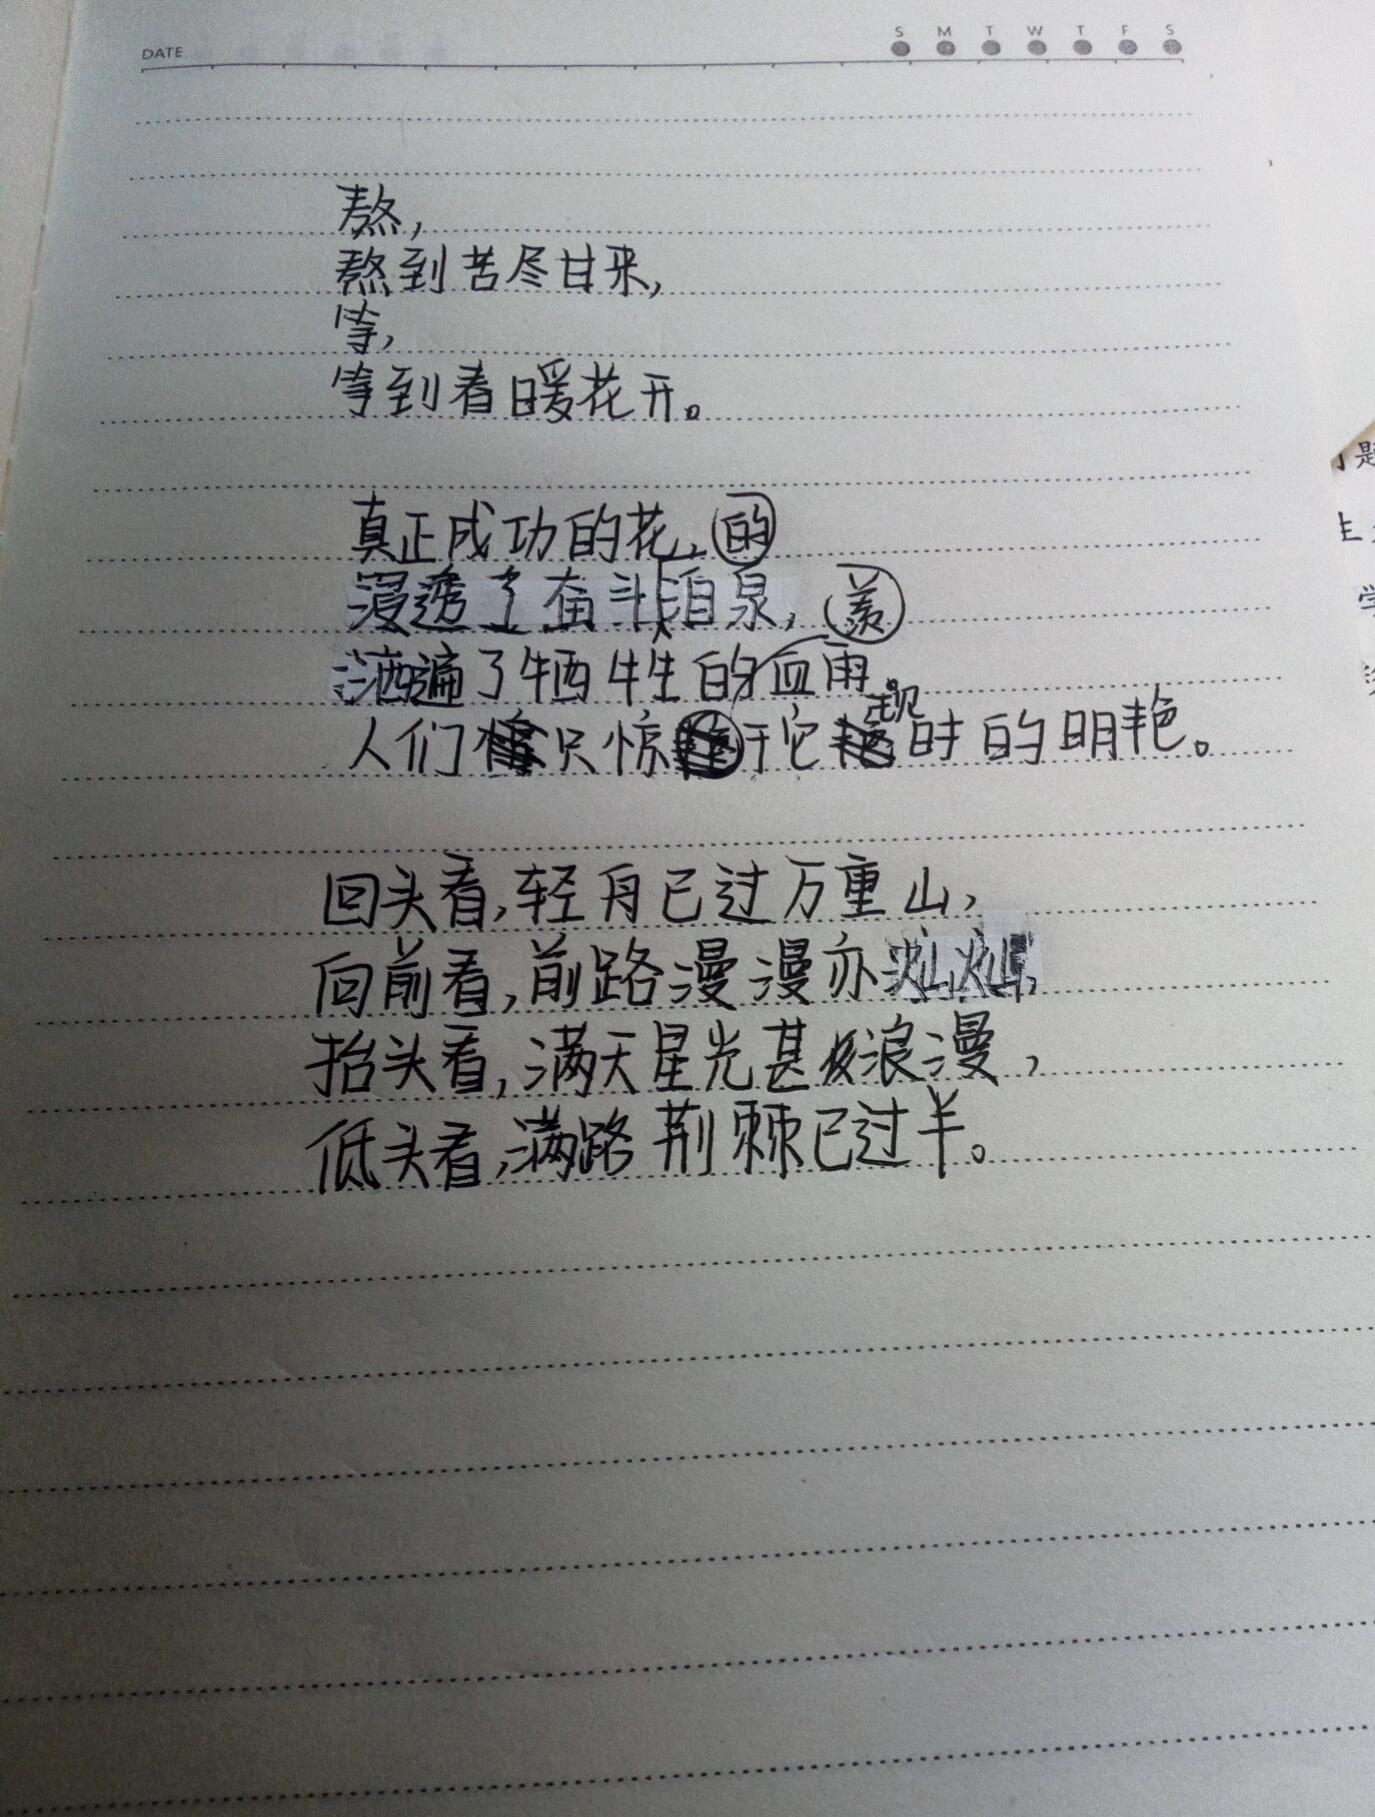 DATE
S M T W T F S
熬,
熬到苦尽甘来,
等,
等到春暖花开。
真正成功的花,
浸透了奋斗的泪泉,
洒遍了牺牲的血雨。
人们只惊羡于它现时的明艳。
回头看,轻舟已过万重山,
向前看,前路漫漫亦灿灿,
抬头看,满天星光甚极浪漫,
低头看,满路荆棘已过半。
题
生
学